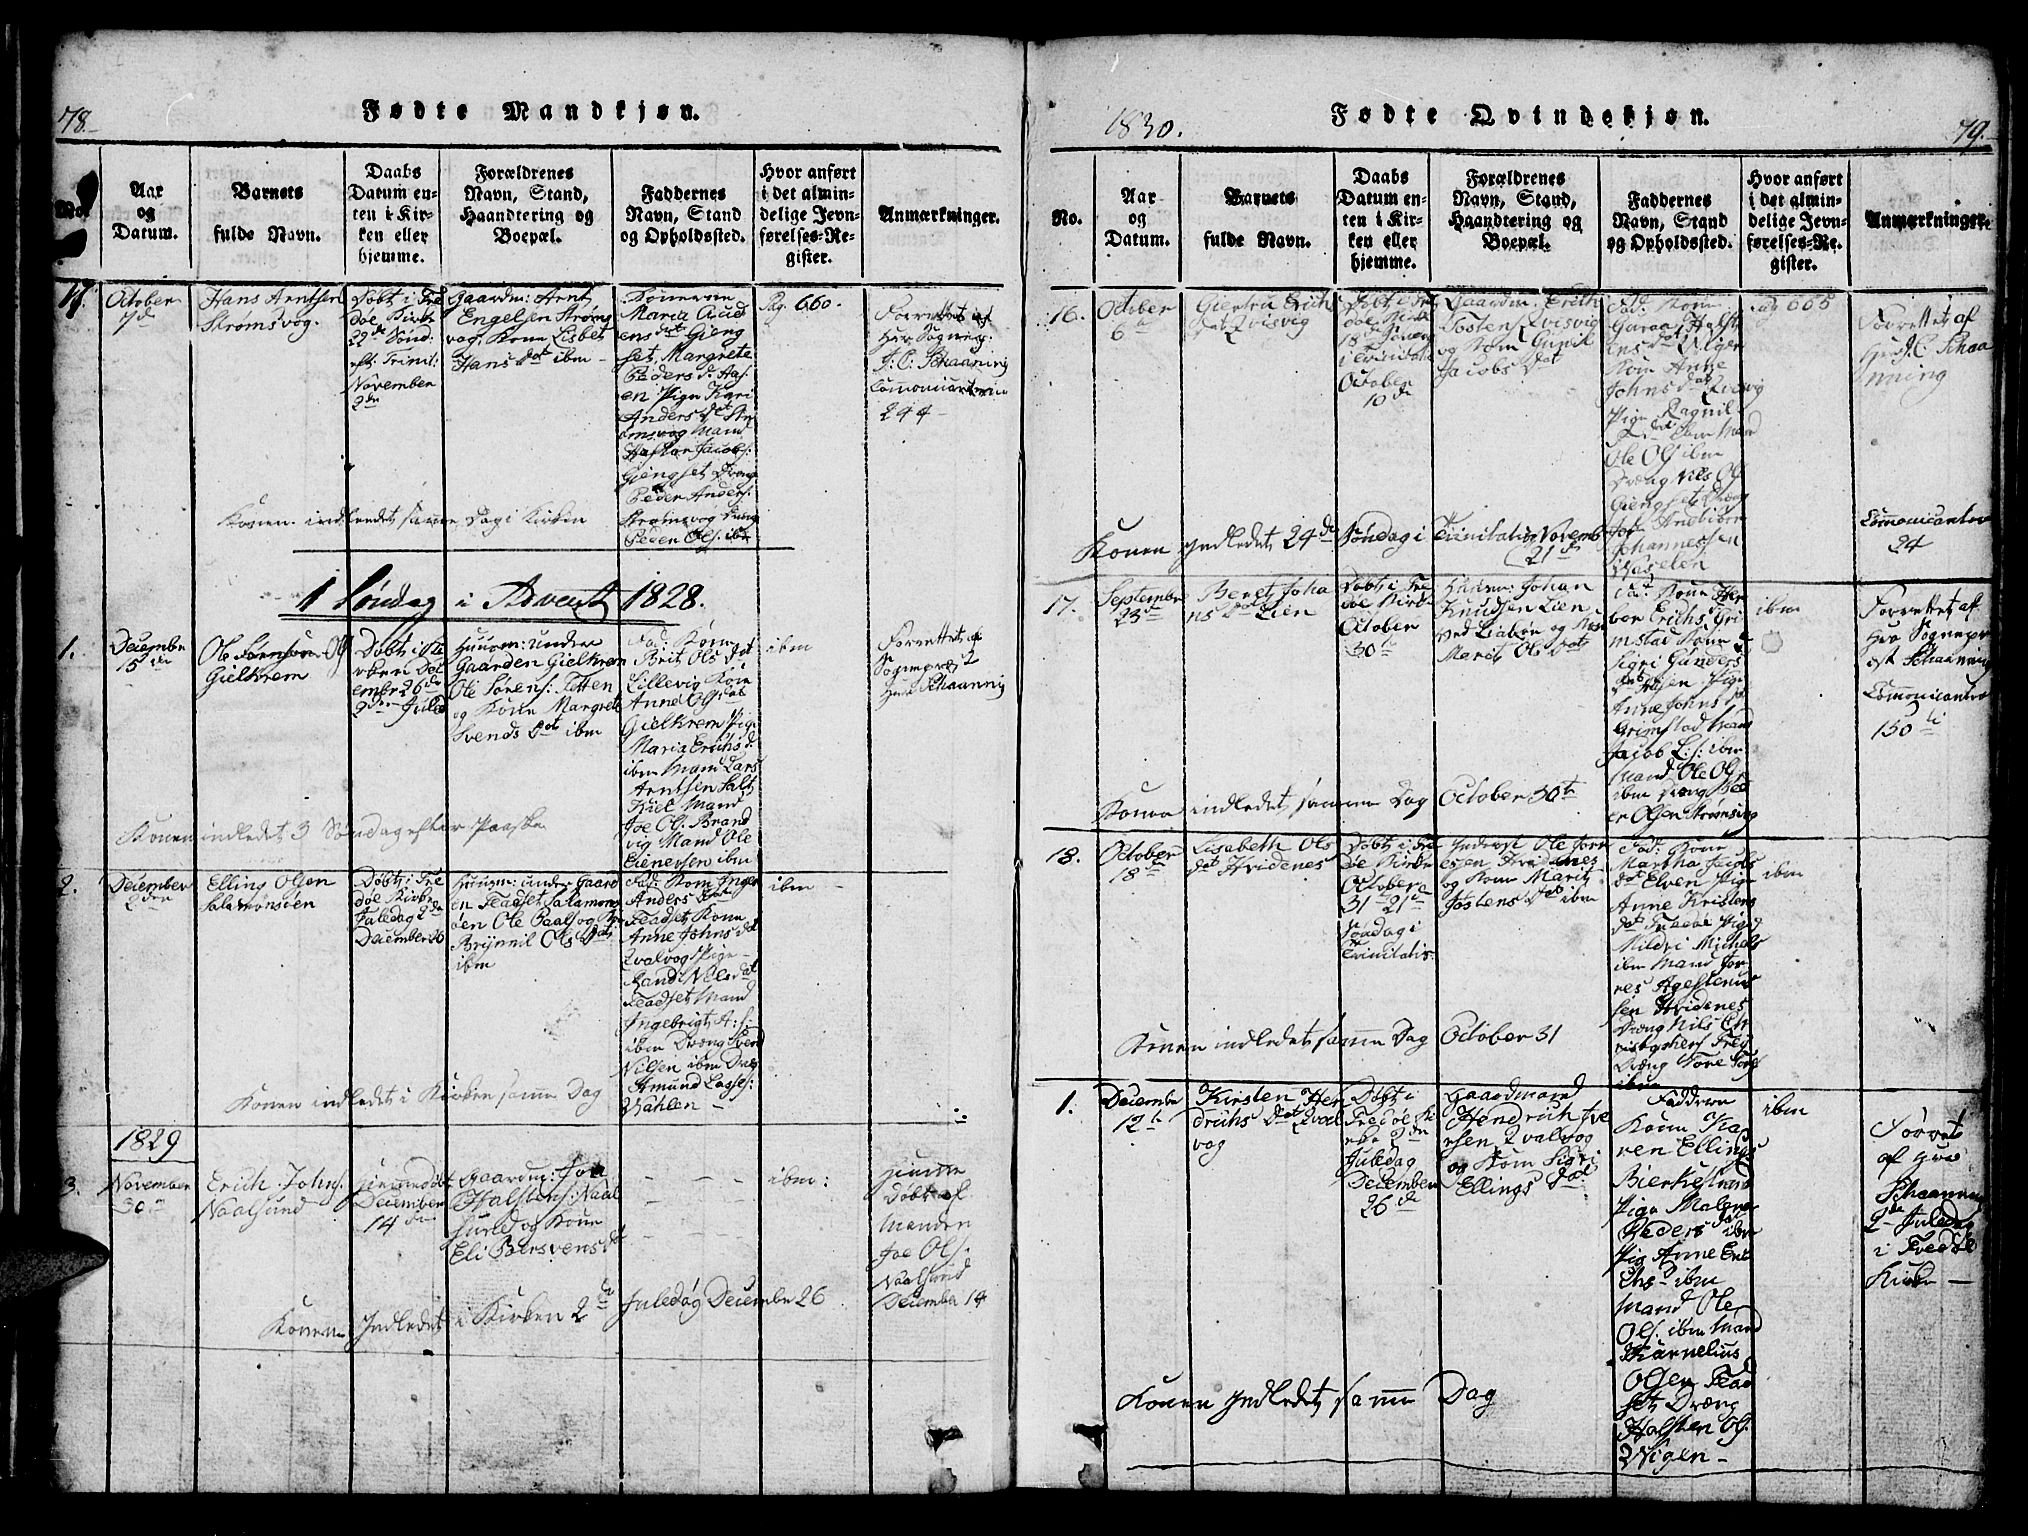 78.
Fødte Mandkjøn.
No.
Aar
og
Datum.
Barnets
fulde Navn.
Daabs
Datum en-
ten i Kir-
ken eller
hjemme.
Forældrenes
Navn, Stand,
Haandtering og
Boepæl.
Faddernes
Navn, Stand
og Opholdssted.
Hvor anført
i det almin-
delige Jevn-
førelses-Re-
gister.
Anmærkninger.
17.
October
7de
Hans Arntsen
Strømsvog.
Døbt i Fre
døe Kirke
22de Sønd:
eft: Trinit:
November
2den
Gaardm: Arnt
Engelsen Strøms
vog, Kone Lisbet
Hans dat ibm
Konerne
Maria Aud
ens dat Gieng
set, Margrete
Peders d: Aas
en Pige Kari
Anders dat Str
omsvog Mand
Haftor Jacobs:
Giengset Dreng
Peder Anders:
Strømsvog Dreng
Peder Ols: ibm
Pag. 660.
Forrettet af
Her Sognepr:
J. C. Schaanning
Communicanterne
244
Konen indledet samme Dag i Kirken
1 Søndag i Advent 1828.
1.
Decembe
15de
Ole Sørensen Ols
Gielkrem
Døbt i
Dec
embr 26de
2den Juled
Huusm: under
Gaarden Gielkrem
Ole Sørens: Tetten
og Kone Margrete
Svends dat ibm
Fad: Kone
Brit Ols dat
Lillevig Kone
Anne Ols dat
Gielkrem Pige
Maria Erichs d:
ibm Mand Lars
Arntsen Salt
Kiel Mand
Joe Ols. Brand
vig Mand Ole
Einersen ibm
ibm
Forrettet af
Sognepræst
Herr Schaanning
Konen indledet 3 Søndag efter Paaske
2.
December
2den
Elling Olsen
Salamonsøen
Døbt i Fre
døe Kirke
Juledag 2de
December 26
Huusm: under Gaard
en Fladset Salamons
øen Ole Paals og Kone
Brynnil Ols dat
ibm
Fad: Kone Inger
Anders dat
Fladset Kone
Anne Johns dat
Qvalvog Pige
Rand Nils dat
Fladset Mand
Ingebrigt A:s:
ibm Dreng Svend
Nilsen ibm Dreng
Amund Lasses:
Vahlen
ibm
Konen indledet i Kirken samme Dag
1829
3.
November
30te
Erich Johns:
Naalsund
Hiemmedøbt
December
14de
Gaardm: Joe
Halstens: Naal
sund og Kone
Eli Bersvens dat
ibm:
Hiemme
Døbt af
Manden
Joe Ols.
Naalsund
December 14
Konen Indledet i Kirken 2den Juledag Decembe 26
1830.
Fødte Qvindekjøn.
79.
No.
Aar
og
Datum.
Barnets
fulde Navn.
Daabs
Datum en-
ten i Kir-
ken eller
hjemme.
Forældrenes
Navn, Stand,
Haandtering og
Boepæl.
Faddernes
Navn, Stand
og Opholdssted.
Hvor anført
i det almin-
delige Jevn-
førelses-Re-
gister.
Anmærkninger.
16.
October
6te
Giertru Erich
dat Qvisvig
Døbt i Fre
døe Kirke
18de Søndag
i Trinitatis
October
10de
Gaardm. Erich
Tosten Qvisvig
og Kone Gunil
Jacobs Dat
Fad: Kone
Guraa Halst
ens dat Vigen
Kone Anne
Johns dat Qvisvig
Pige Ragnil
ibm Mand
Ole Ols ibm
Dreng Nils Ols
Giengset Dreng
Johannessen
Pag 665
Forrettet af
Herr J. C. Schaa
nning
Communicantere
24
Konen Indledet 24de Søndag i Trinitatis Novemb
21de
17.
Septembe
23de
Beret Joha
ns Dat Lien
Døbt i Fre
døe Kirke
October
30te
Huusm: Johan
Knudsen Lien
og Kone
Merit Ols Dat
Fad: Kone
Erichs Gri
mstad Kone
Sigri Gunders
Pige
Anne Johns d:
Grimstad Mand
Jacob L:s: ibm
Mand Ole Ols
ibm Dreng Ped
er Olsen Strømsvig
ibm
Forrettet af
Hrr Sognepr
æst Schaanning
Communicantere
150ti
Konen indledet samme Dag October 30te
18.
October
18de
Lisabeth Ols
dat Hvidenes
Døbt i Fre
døe Kirke
October
31 21de
Søndag i
Trinitatis
Inderst Ole Jon
esen Hvidenes
og Kone Marit
Jostens Dat ibm
Fad: Kone
Martha Jacobs
dat Elven Pige
Anne Kristens
dat Fredøe Pige
Mildri Michels
ibm Mand Jon
nes Agestenus
sen Hvidenes
Dreng Nils Ch
ristophers Fred
Dreng Tore Tores
ibm
ibm
Konen indledet samme Dag October 31
1.
Decembe
12te
Kirsten Hen
drichs Dat Qval
vog
Døbt i
Fredøe Ki
rke 2den
Juledag
December
26de
Gaardmand
Hendrich Ive
rsen Qvalvog
og Kone Sigri
Ellings dat
Faddere
Kone Ka
ren Ellings
Bierkestrand
Pige Malene
Peders dat ibm
Pig Anne Eri
chs d ibm
Mand Ole
Ols. ibm Mand
Karnelius
Olsen Flad
set Dreng
Halsten Ols.
Vigen
ibm
Forret
af Hrr
Schaanning
2de Juledag
i Fredøe
Kirke
Konen Indledet samme Dag